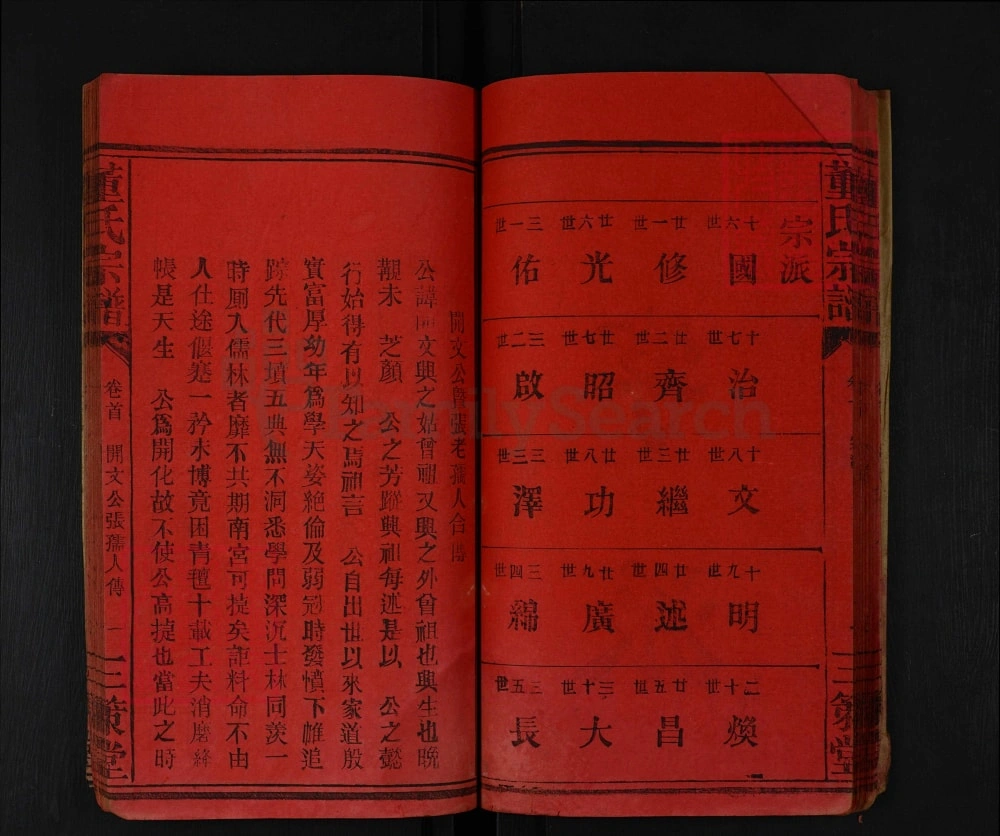 董氏宗譜
三策堂
宗派
十六世 國
十七世 治
十八世 文
十九世 明
二十世 煥
廿一世 修
廿二世 齊
廿三世 繼
廿四世 述
廿五世 昌
廿六世 光
廿七世 昭
廿八世 功
廿九世 廣
三十世 大
三一世 佑
三二世 啟
三三世 澤
三四世 綿
三五世 長
開文公暨張老孺人合傳
公諱開文興之姑曾祖又興之外曾祖也興生也晚
覯未 芝顏 公之芳蹤興祖每述是以 公之懿
行始得有以知之焉祖言 公自出世以來家道殷
實富厚幼年爲學天姿絕倫及弱冠時發憤下帷追
踪先代三墳五典無不洞悉學問深沉士林同羨一
時厠入儒林者靡不共期南宮可捷矣詎料命不由
人仕途偃蹇一矜未博竟困青氊十載工夫消磨絳
帳是天生 公爲開化故不使公高捷也當此之時
董氏宗譜
卷首 開文公張孺人傳 一
三策堂
FamilySearch